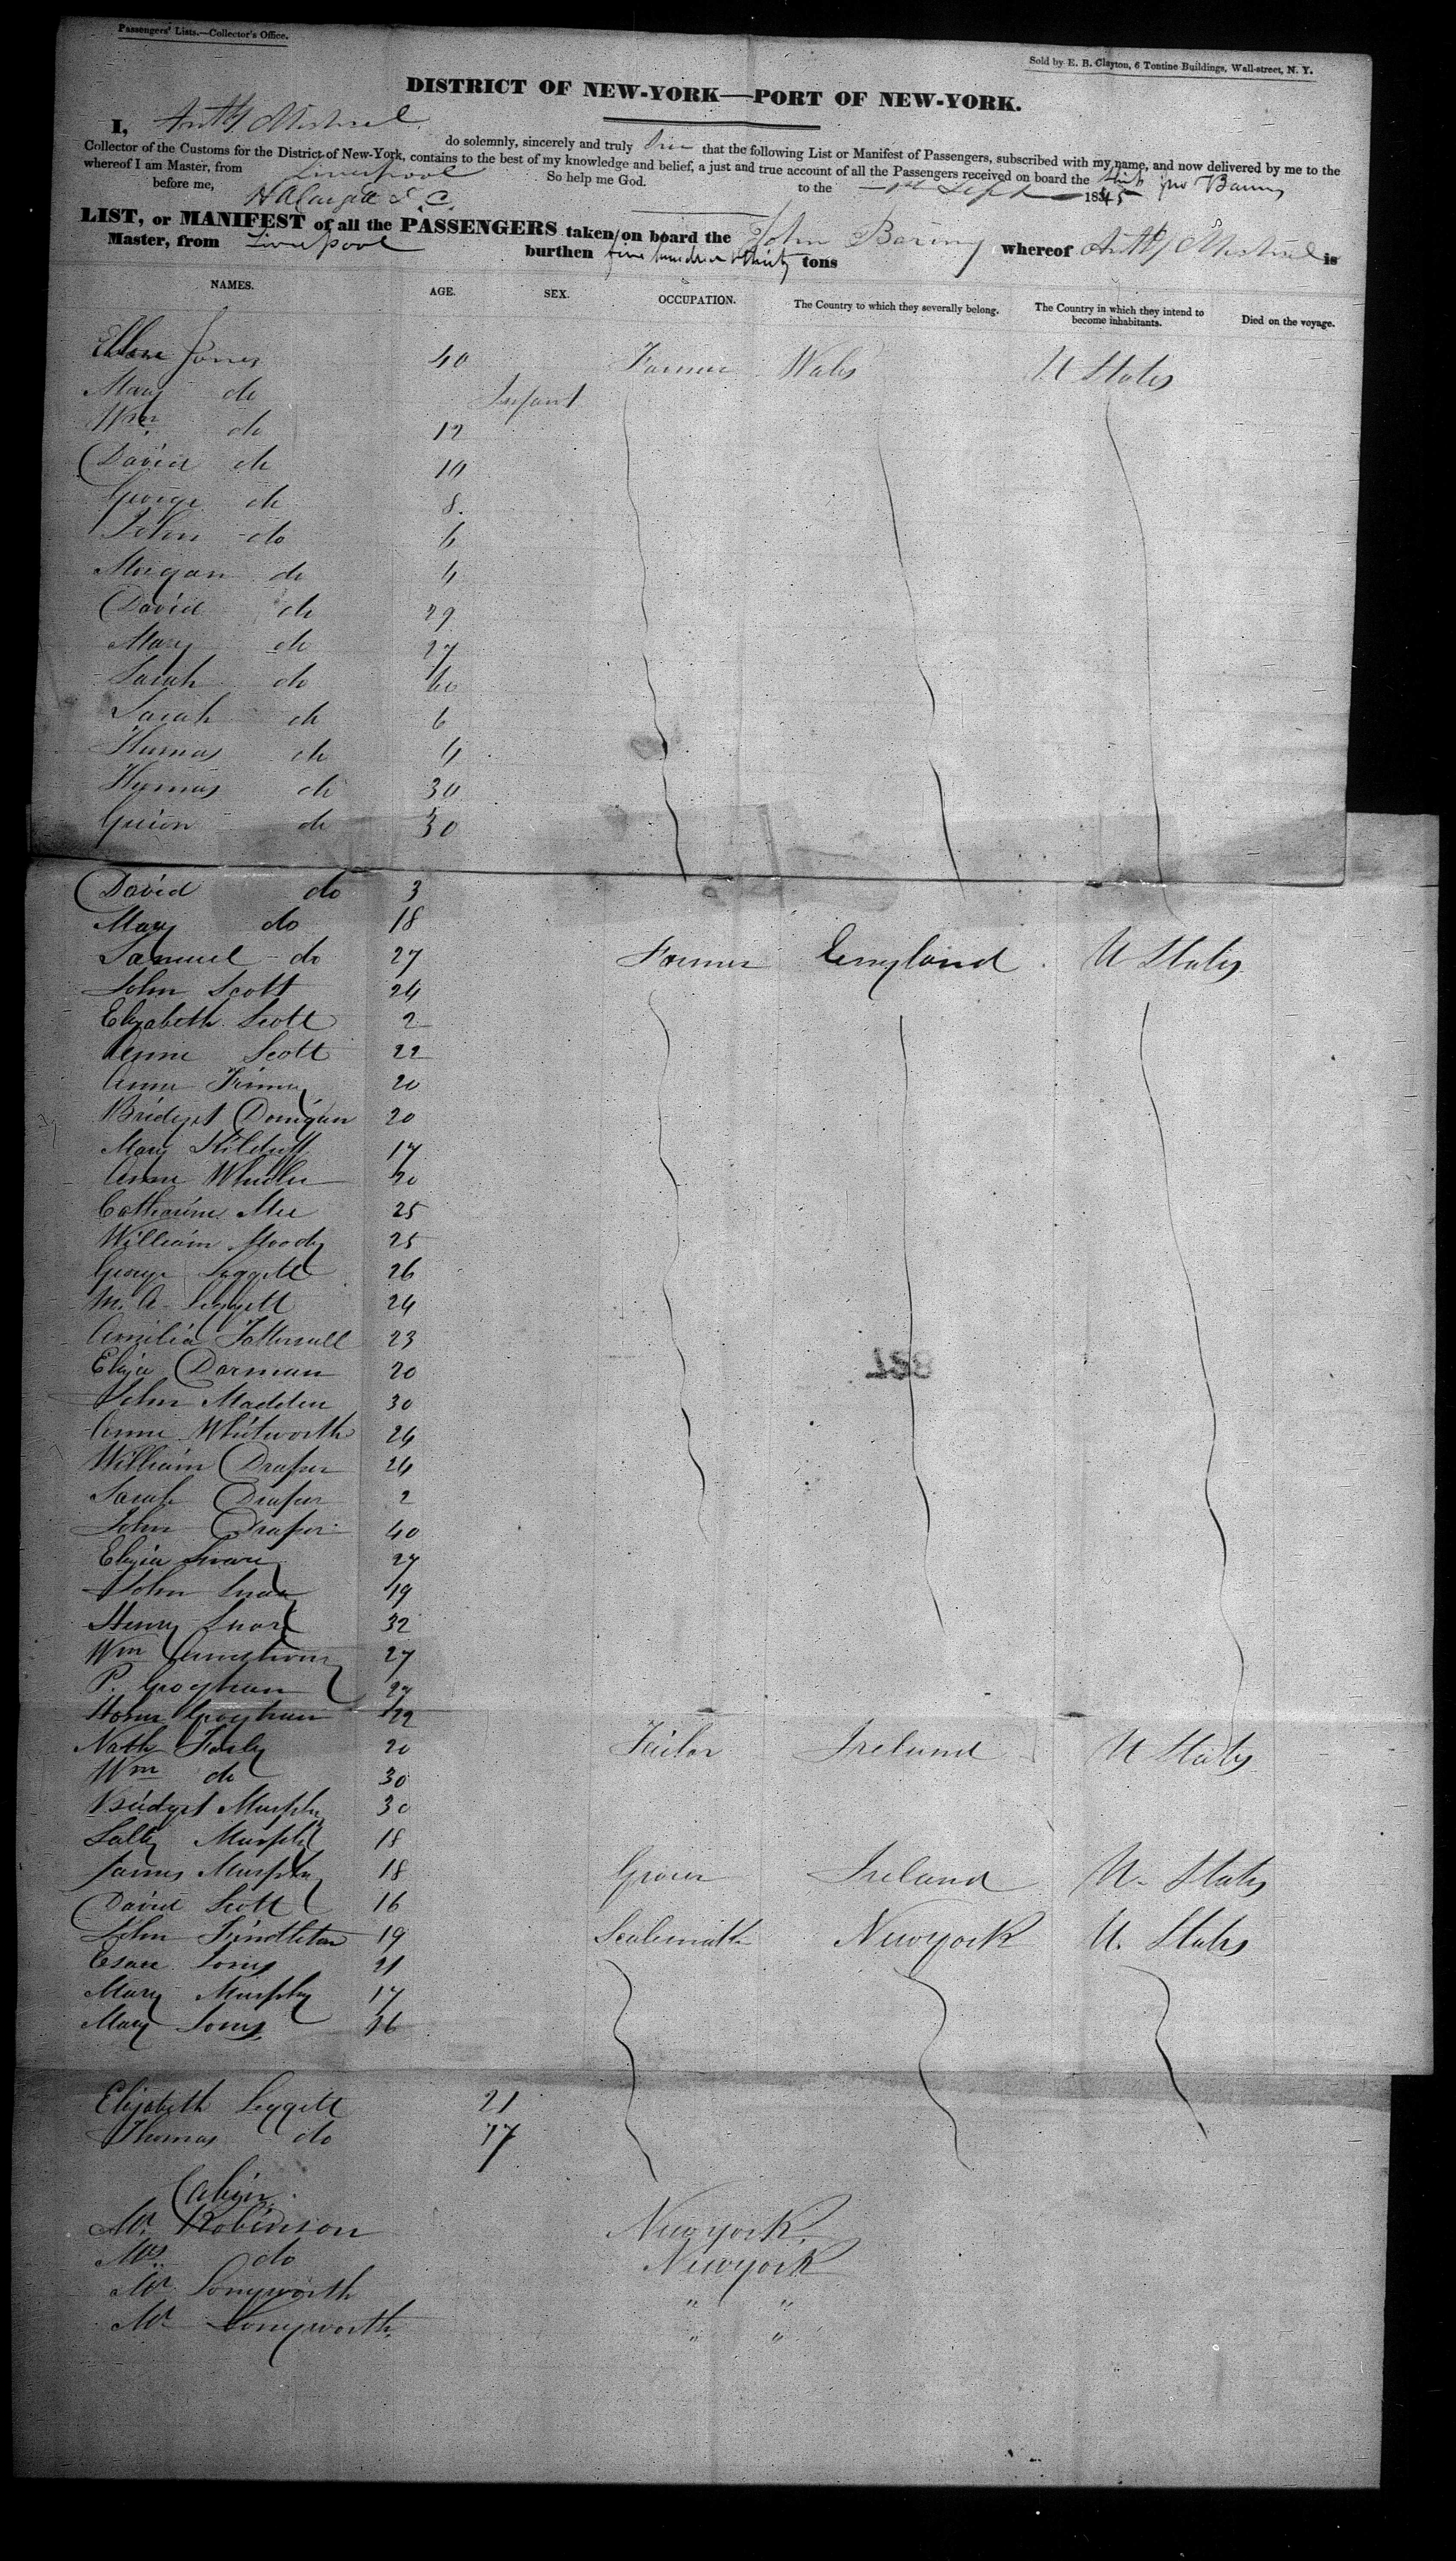 Passengers' Lists.—Collector's Office.
Sold by E. B. Clayton, 6 Tontine Buildings, Wall-street, N. Y.
DISTRICT OF NEW-YORK—PORT OF NEW-YORK.
I, do solemnly, sincerely and truly that the following List or Manifest of Passengers, subscribed with my name, and now delivered by me to the
Collector of the Customs for the District of New-York, contains to the best of my knowledge and belief, a just and true account of all the Passengers received on board the Ship Jno Baring
whereof I am Master, from Liverpool to the 1st Sept 1845
So help me God.
before me,
LIST, or MANIFEST of all the PASSENGERS taken on board the John Baring whereof is
Master, from Liverpool burthen five hundred & thirty tons
NAMES. AGE. SEX. OCCUPATION. The Country to which they severally belong. The Country in which they intend to become inhabitants. Died on the voyage.
Jones 40 Farmer Wales U States
Mary do Infant
Wm. do 12
David do 10
George do 8
John do 6
Morgan do 4
David do 29
Mary do 27
Sarah do
Sarah do 6
Thomas do 4
Thomas do 30
do 30
David do 3
Mary do 18
Samuel do 27 Farmer England U States
John Scott 24
Elizabeth Scott 2
Anne Scott 22
Anne 20
Bridget Donigan 20
Mary Kilduff 17
Anne Wheeler
Catharine Mee 25
William Moody 25
George Leggett 26
M. A. Leggett 24
Amilia Tattersall 23
Eliza Dorman 20
John Madden 30
Anne Whitworth 24
William Draper 24
Sarah Draper 2
John Draper 40
27
John 19
Henry 32
Wm Armstrong 27
P. Groghan 27
Groghan 22
Nath Farly 20 Tailor Ireland U States
Wm do 30
Bridget Murphy 30
Sally Murphy 18
James Murphy 18 Grocer Ireland U. States
David Scott 16
John Pendleton 19 Newyork U. States
21
Mary Murphy 17
Mary
Elizabeth Leggett 21
Thomas do
Cabin
Mr. Robinson Newyork
Mrs do Newyork
Mr Longworth " "
Mr Longworth " "